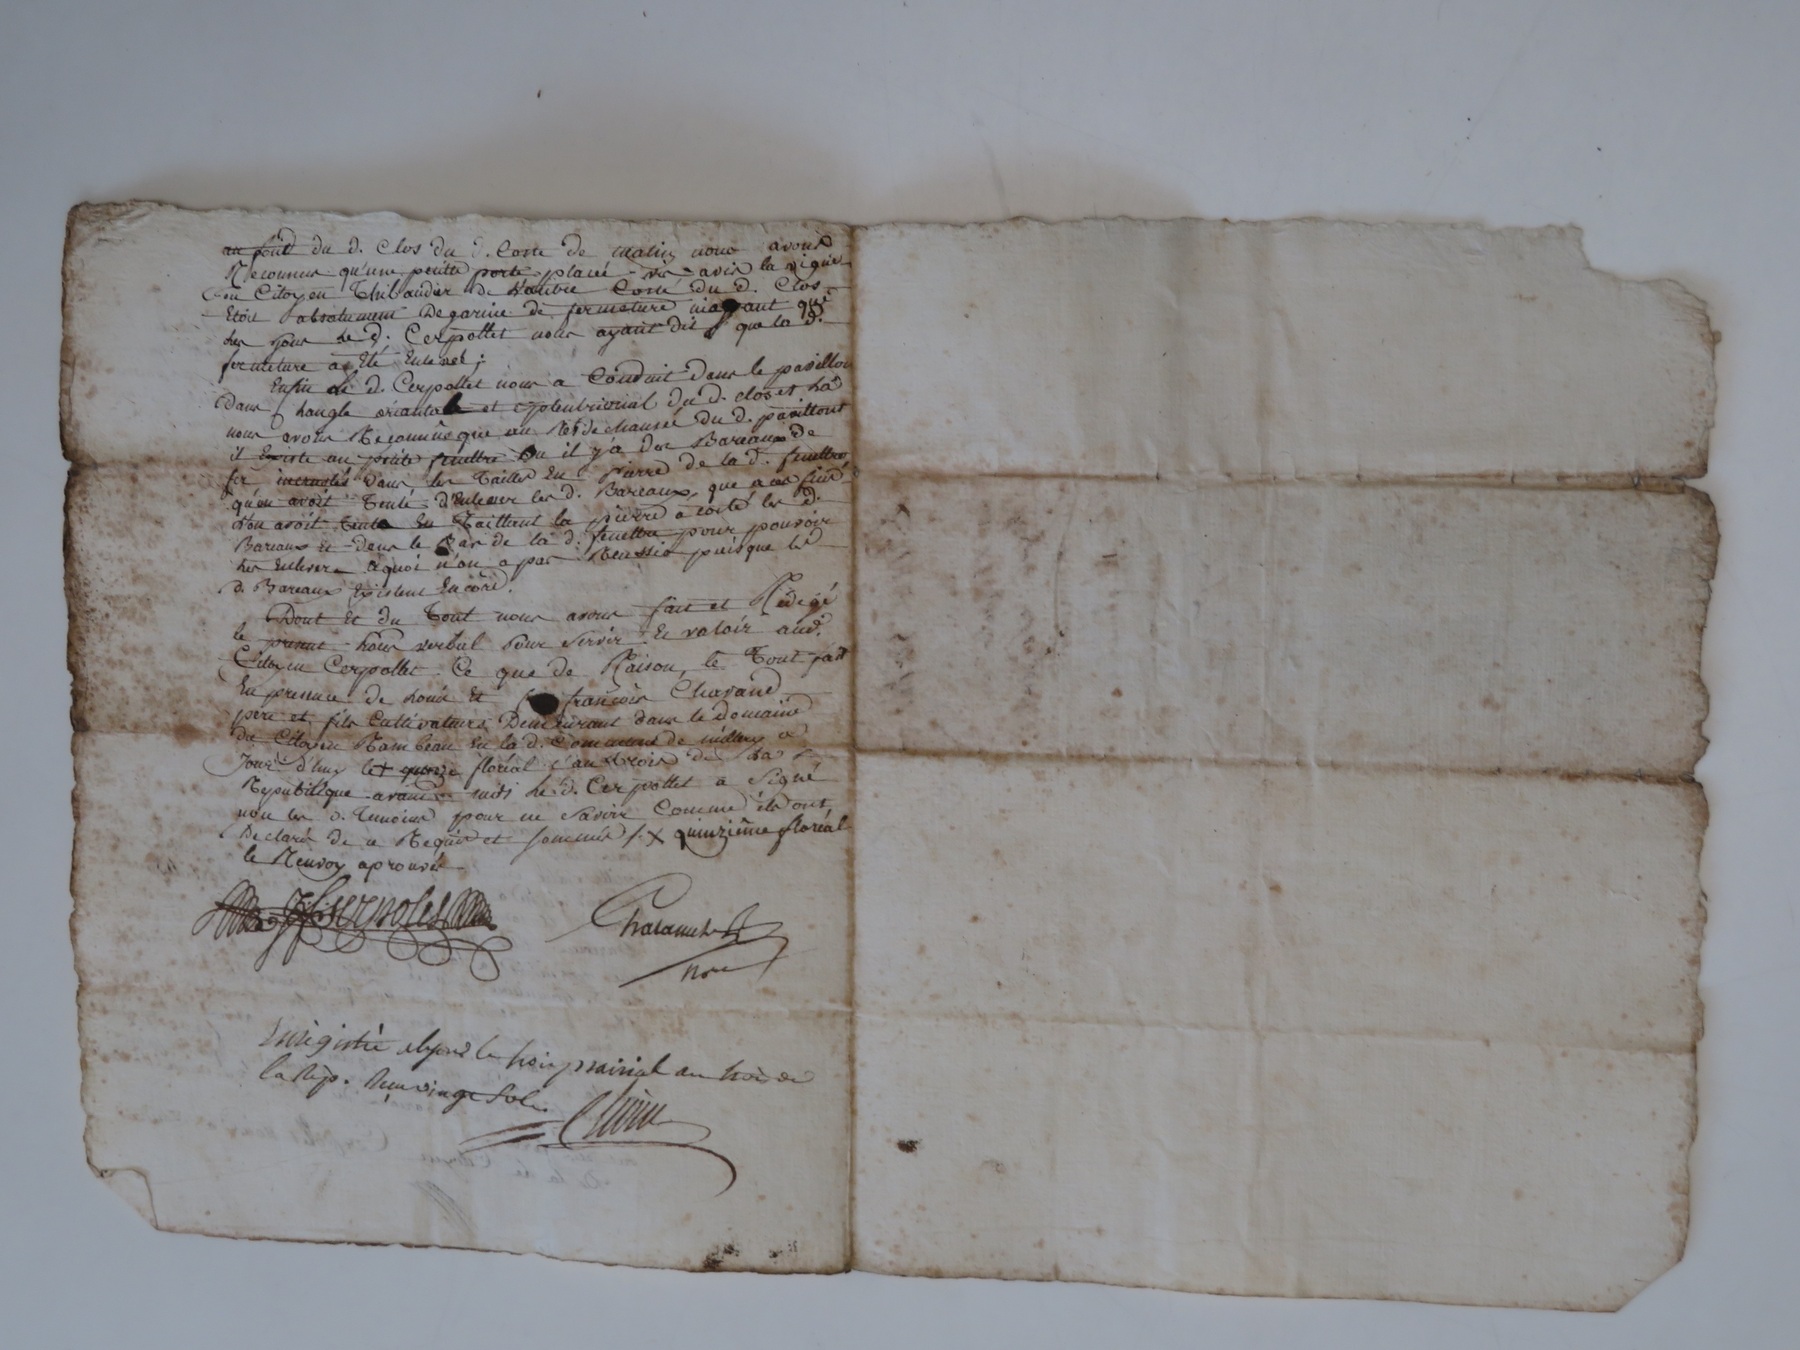 au fond du d. Clos du d. Costé de matin nous avons
Reconnus qu'une petitte porte placée vis avis la vigne
du Citoyen Thibaudier de l'autre Costé du d. Clos
Etoit absolument Degarnie de fermeture n'ayant que
les gons le d. Cerpollet nous ayant dit que la d.
fermeture a Eté Enlevée;
Enfin le d. Cerpollet nous a Conduit dans le pavillon
Dans l'angle oriantal et septentrional du d. clos et là
nous avons Reconnûs que au Rés de chaussé du d. pavillont
il Existe une petite fenettre où il y a des Bareaux de
fer incrustés dans les Tailles En Pierre de la d. fenettre
qu'on avoit Tenté d'Enlever les d. Bareaux, que a ces fins
l'on avoit Tenté En Taillant la pierre a costé les d.
Bareaux et dans le Bas de la d. fenettre pour pouvoir
les Enlever a quoi n'on a pas Reussis puisque les
d. Bareaux Existent Encore.
Dont Et du Tout nous avons fait et Rédigé
le present verbal pour servir Et valoir aud.
Citoyen Cerpollet Ce que de Raison, le Tout fait
En presence de Louis Et françois Chavand
pere et fils Cultivateurs Demeurant dans le domaine
du Citoyen Rambeau En la d. Commune de
Jour d'huy le + quinze floréal l'an trois de la
Republique avant midi le d. Cerpollet a Signé
non les d. Temoins pour ne Savoir Comme ils ont
Declaré de ce Requis et sommés /. X quinzième floréal
le Renvoy aprouvé
Chalamel
Nore
Enregistré le trois prairial an trois de
la Rép. Reçu vingt sols